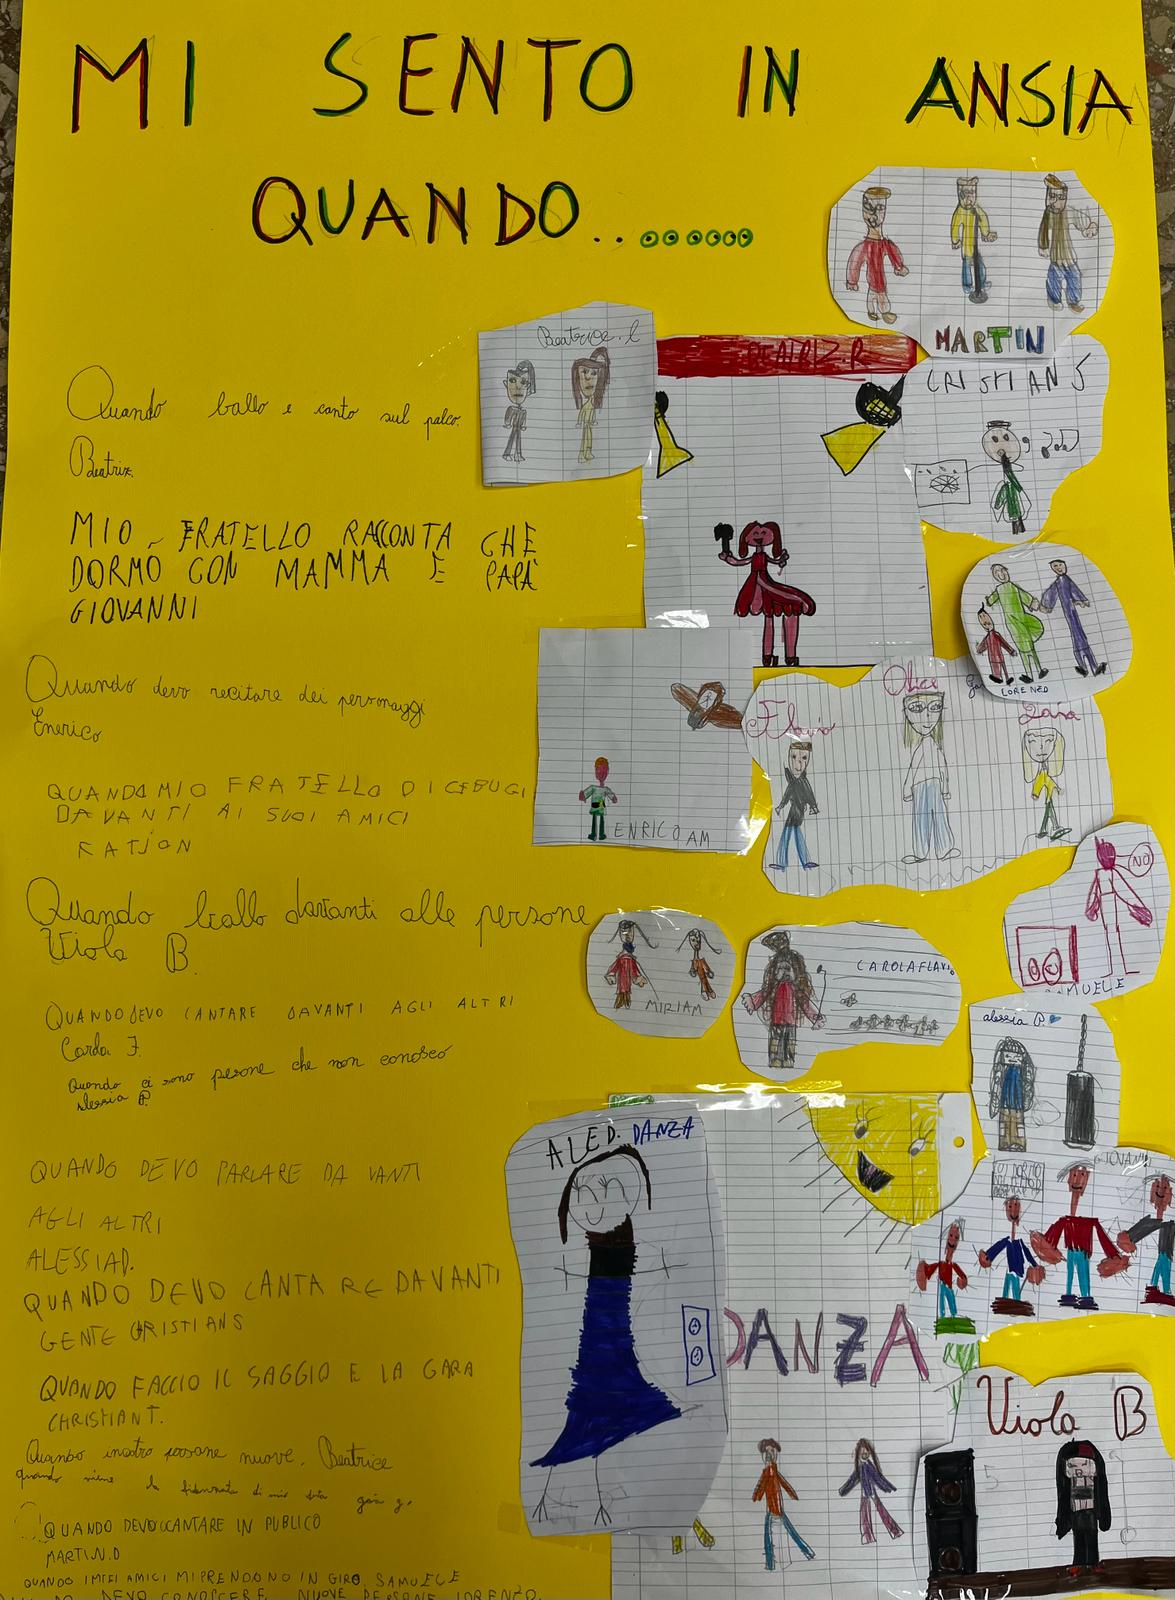 MI SENTO IN ANSIA
QUANDO.........
Quando ballo e canto sul palco.
Beatriz.
MIO FRATELLO RACCONTA CHE
DORMO CON MAMMA E PAPÀ
GIOVANNI
Quando devo recitare dei personaggi
Enerico
QUANDO MIO FRATELLO DICE BUGI
DAVANTI AI SUOI AMICI
Quando ballo davanti alle persone
Viola B.
QUANDO DEVO CANTARE DAVANTI AGLI ALTRI
Carola F.
Quando ci sono persone che non conosco
alessia P.
QUANDO DEVO PARLARE DA VANTI
AGLI ALTRI
ALESSIAD.
QUANDO DEVO CANTARE DAVANTI
GENTE CRISTIANS
QUANDO FACCIO IL SAGGIO E LA GARA
CHRISTIANT.
Quando incotro persone nuove. Beatrice
quando viene la fidanzata di mio gaia g.
QUANDO DEVO CANTARE IN PUBLICO
MARTIN.D
QUANDO I MIEI AMICI MI PRENDONO IN GIRO, SAMUELE
DEVO CONOSCERE NUOVE PERSONE LORENZO.
MARTIN
Beatrice.l
BEATRIZ.R
CRISTIAN S
LORENZO
Flavio
Alice
Gaia
ENRICO AM
NO
SAMUELE
MIRIAM
CAROLA FLAVIO
alessia P.
ALE D. DANZA
GIOVANNI
DANZA
Viola B